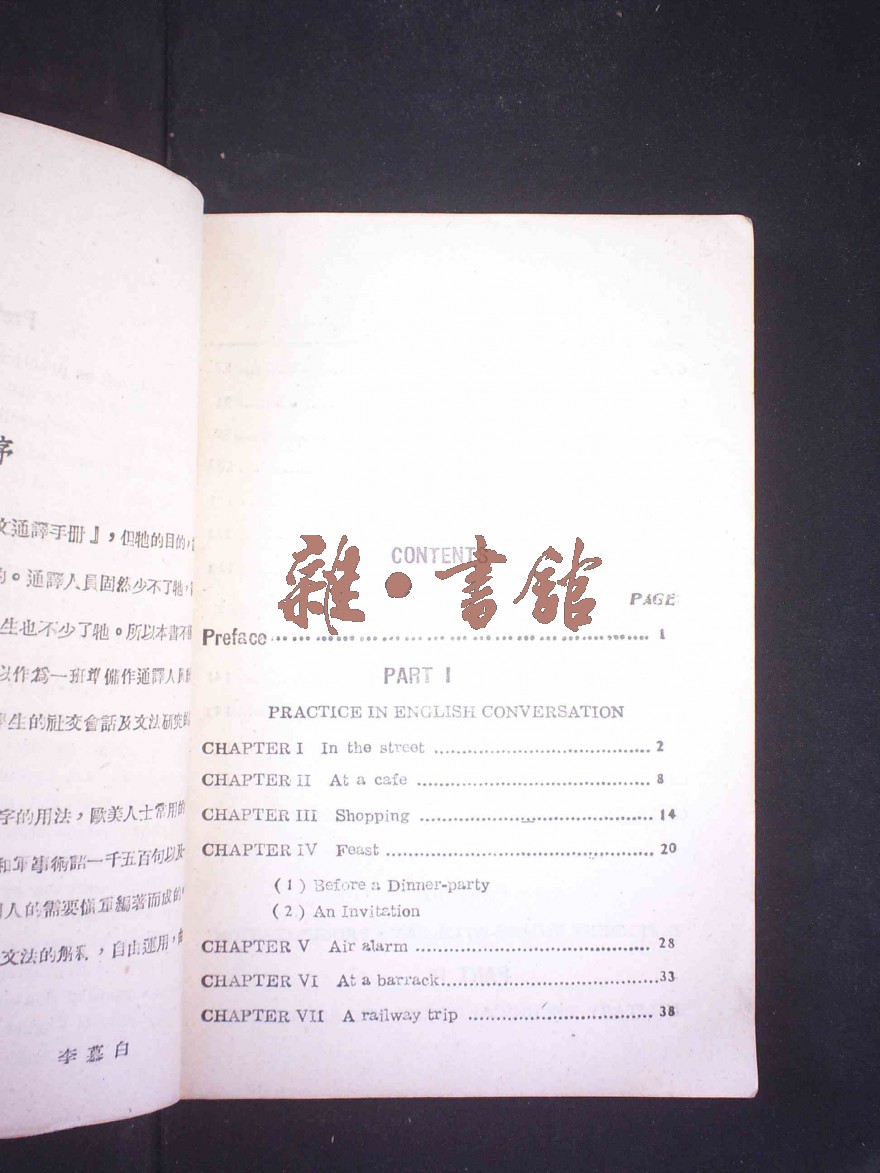 序
文通譯手冊』，但牠的目的，
的。通譯人員固然少不了牠，
生也不少了牠。所以本書不
以作爲一班準備作通譯人員
學生的社交會話及文法研究
字的用法，歐美人士常用的
和軍事術語一千五百句以及
人的需要慎重編著而成的
文法的解釋，自由運用，
李慕白
雜·書館
CONTENTS
PAGE
Preface 1
PART I
PRACTICE IN ENGLISH CONVERSATION
CHAPTER I In the street 2
CHAPTER II At a cafe 8
CHAPTER III Shopping 14
CHAPTER IV Feast 20
(1) Before a Dinner-party
(2) An Invitation
CHAPTER V Air alarm 28
CHAPTER VI At a barrack 33
CHAPTER VII A railway trip 38